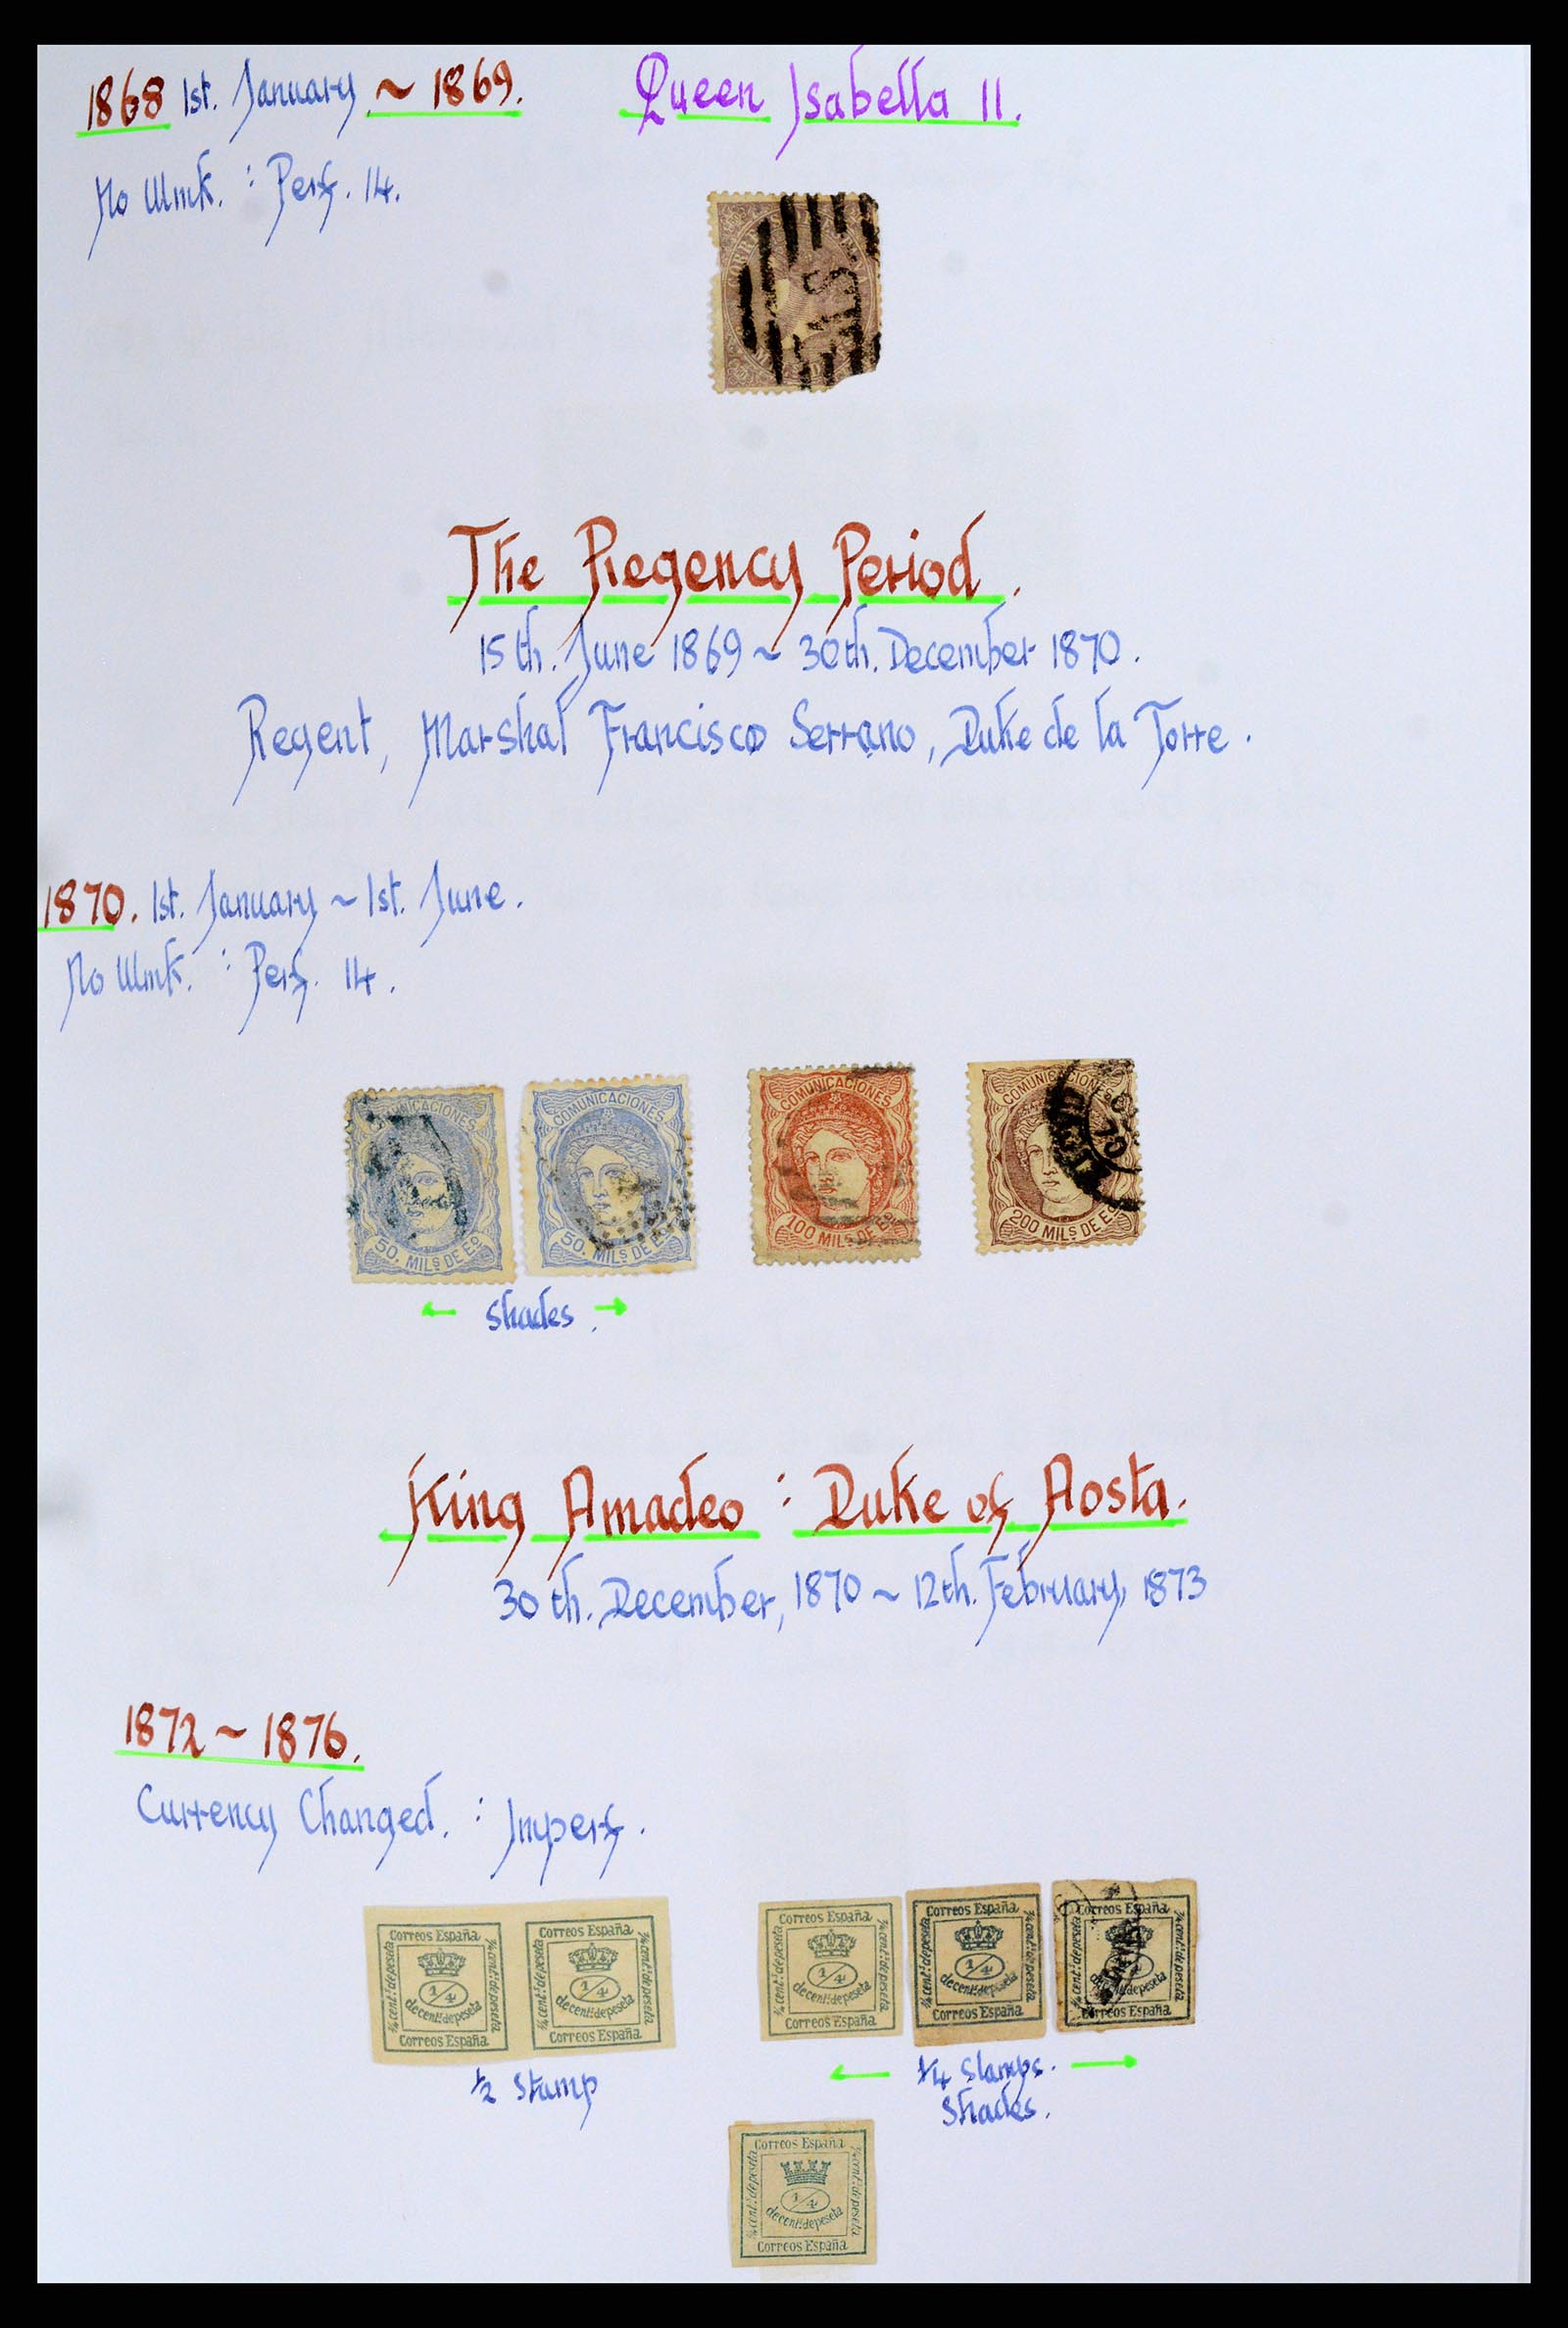 1868 1st. January ~ 1869. Queen Isabella II.
No Wmk. : Perf. 14.
The Regency Period.
15th. June 1869 ~ 30th. December 1870.
Regent, Marshal Francisco Serrano, Duke de la Torre.
1870. 1st. January ~ 1st. June.
No Wmk. : Perf. 14.
COMUNICACIONES COMUNICACIONES COMUNICACIONES COMUNICACIONES
50. MILS DE Eº 50. MILS DE Eº 100 MILS DE Eº 200 MILS DE Eº
← Shades. →
King Amadeo : Duke of Aosta.
30th. December, 1870 ~ 12th. February, 1873
1872 ~ 1876.
Currency Changed. : Imperf.
Correos España Correos España Correos España Correos España Correos España
¼ cent. de peseta ¼ cent. de peseta ¼ cent. de peseta ¼ cent. de peseta ¼ cent. de peseta
1/4 1/4 1/4 1/4
de cent. de peseta de cent. de peseta de cent. de peseta de cent. de peseta de peseta
Correos España Correos España Correos España Correos España Correos España
½ Stamp ← ¼ Stamps. →
Shades.
Correos España
¼ cent. de peseta ¼ cent. de peseta
1/4
de cent. de peseta
Correos España